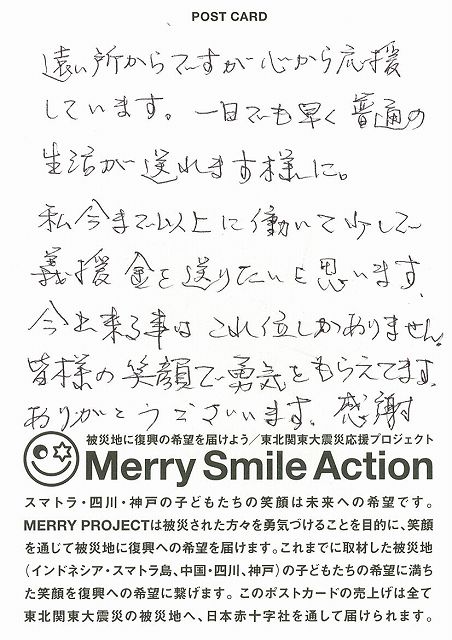 POST CARD
遠い所からですが心から応援
しています。一日でも早く普通の
生活が送れます様に。
私今まで以上に働いて少しで
義援金を送りたいと思います。
今出来る事はこれ位しかありません。
皆様の笑顔で勇気をもらえてます。
ありがとうございます。感謝
被災地に復興の希望を届けよう/東北関東大震災応援プロジェクト
Merry Smile Action
スマトラ・四川・神戸の子どもたちの笑顔は未来への希望です。
MERRY PROJECTは被災された方々を勇気づけることを目的に、笑顔
を通じて被災地に復興への希望を届けます。これまでに取材した被災地
(インドネシア・スマトラ島、中国・四川、神戸)の子どもたちの希望に満ち
た笑顔を復興への希望に繋げます。このポストカードの売上げは全て
東北関東大震災の被災地へ、日本赤十字社を通して届けられます。